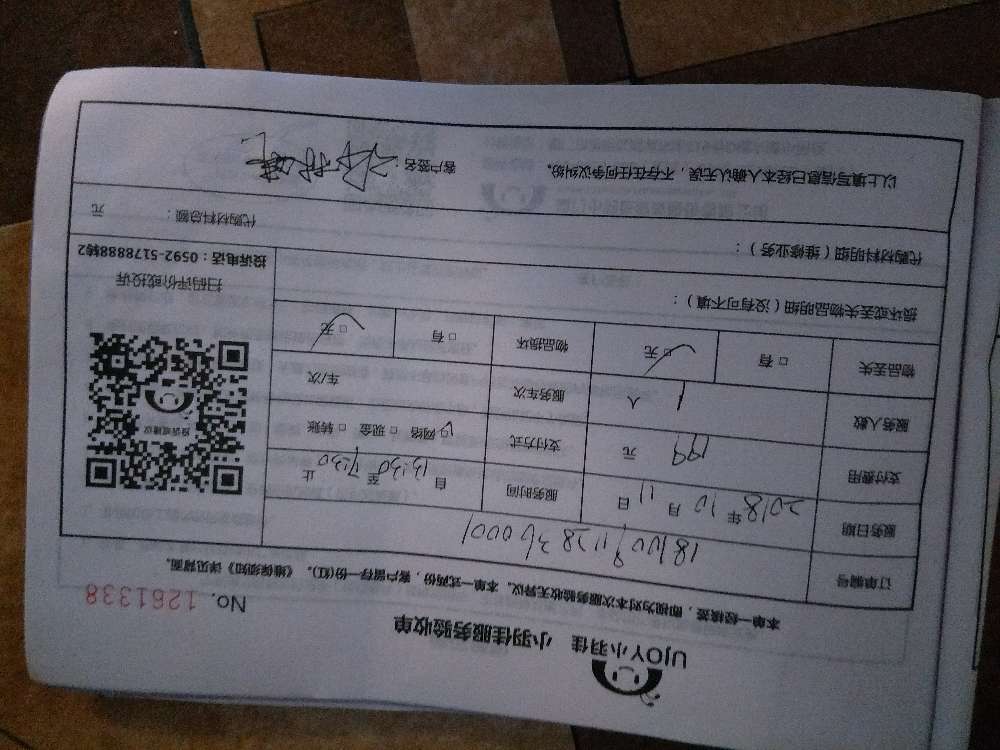 UJOY小羽佳 小羽佳服务验收单
No. 1261338
本单一经核签，即视为对本次服务验收无异议。本单一式两份，客户留存一份(红)。《维保须知》详见背面。
订单编号 1810091128360001
服务日期 2018年10月11日 服务时间 自13:30至17:30止
支付费用 199元 支付方式 ☑网络 □现金 □转账
服务人数 1人 服务车次 车/次
物品丢失 □有 ☑无 物品损坏 □有 ☑无
损坏或丢失物品明细（没有可不填）：
投诉或建议
扫码评价或投诉
投诉电话：0592-5178888转2
代购材料明细（维修业务）：
代购材料总额： 元
以上填写信息已经本人确认无误，不存在任何争议纠纷。 客户签名：